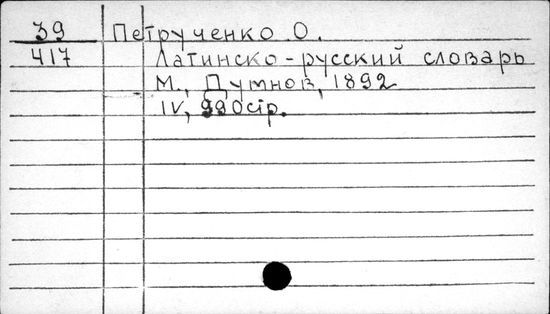 39 Петрученко О.
417 Латинско-русский словарь
М., Думнов, 1892
IV, 990стр.